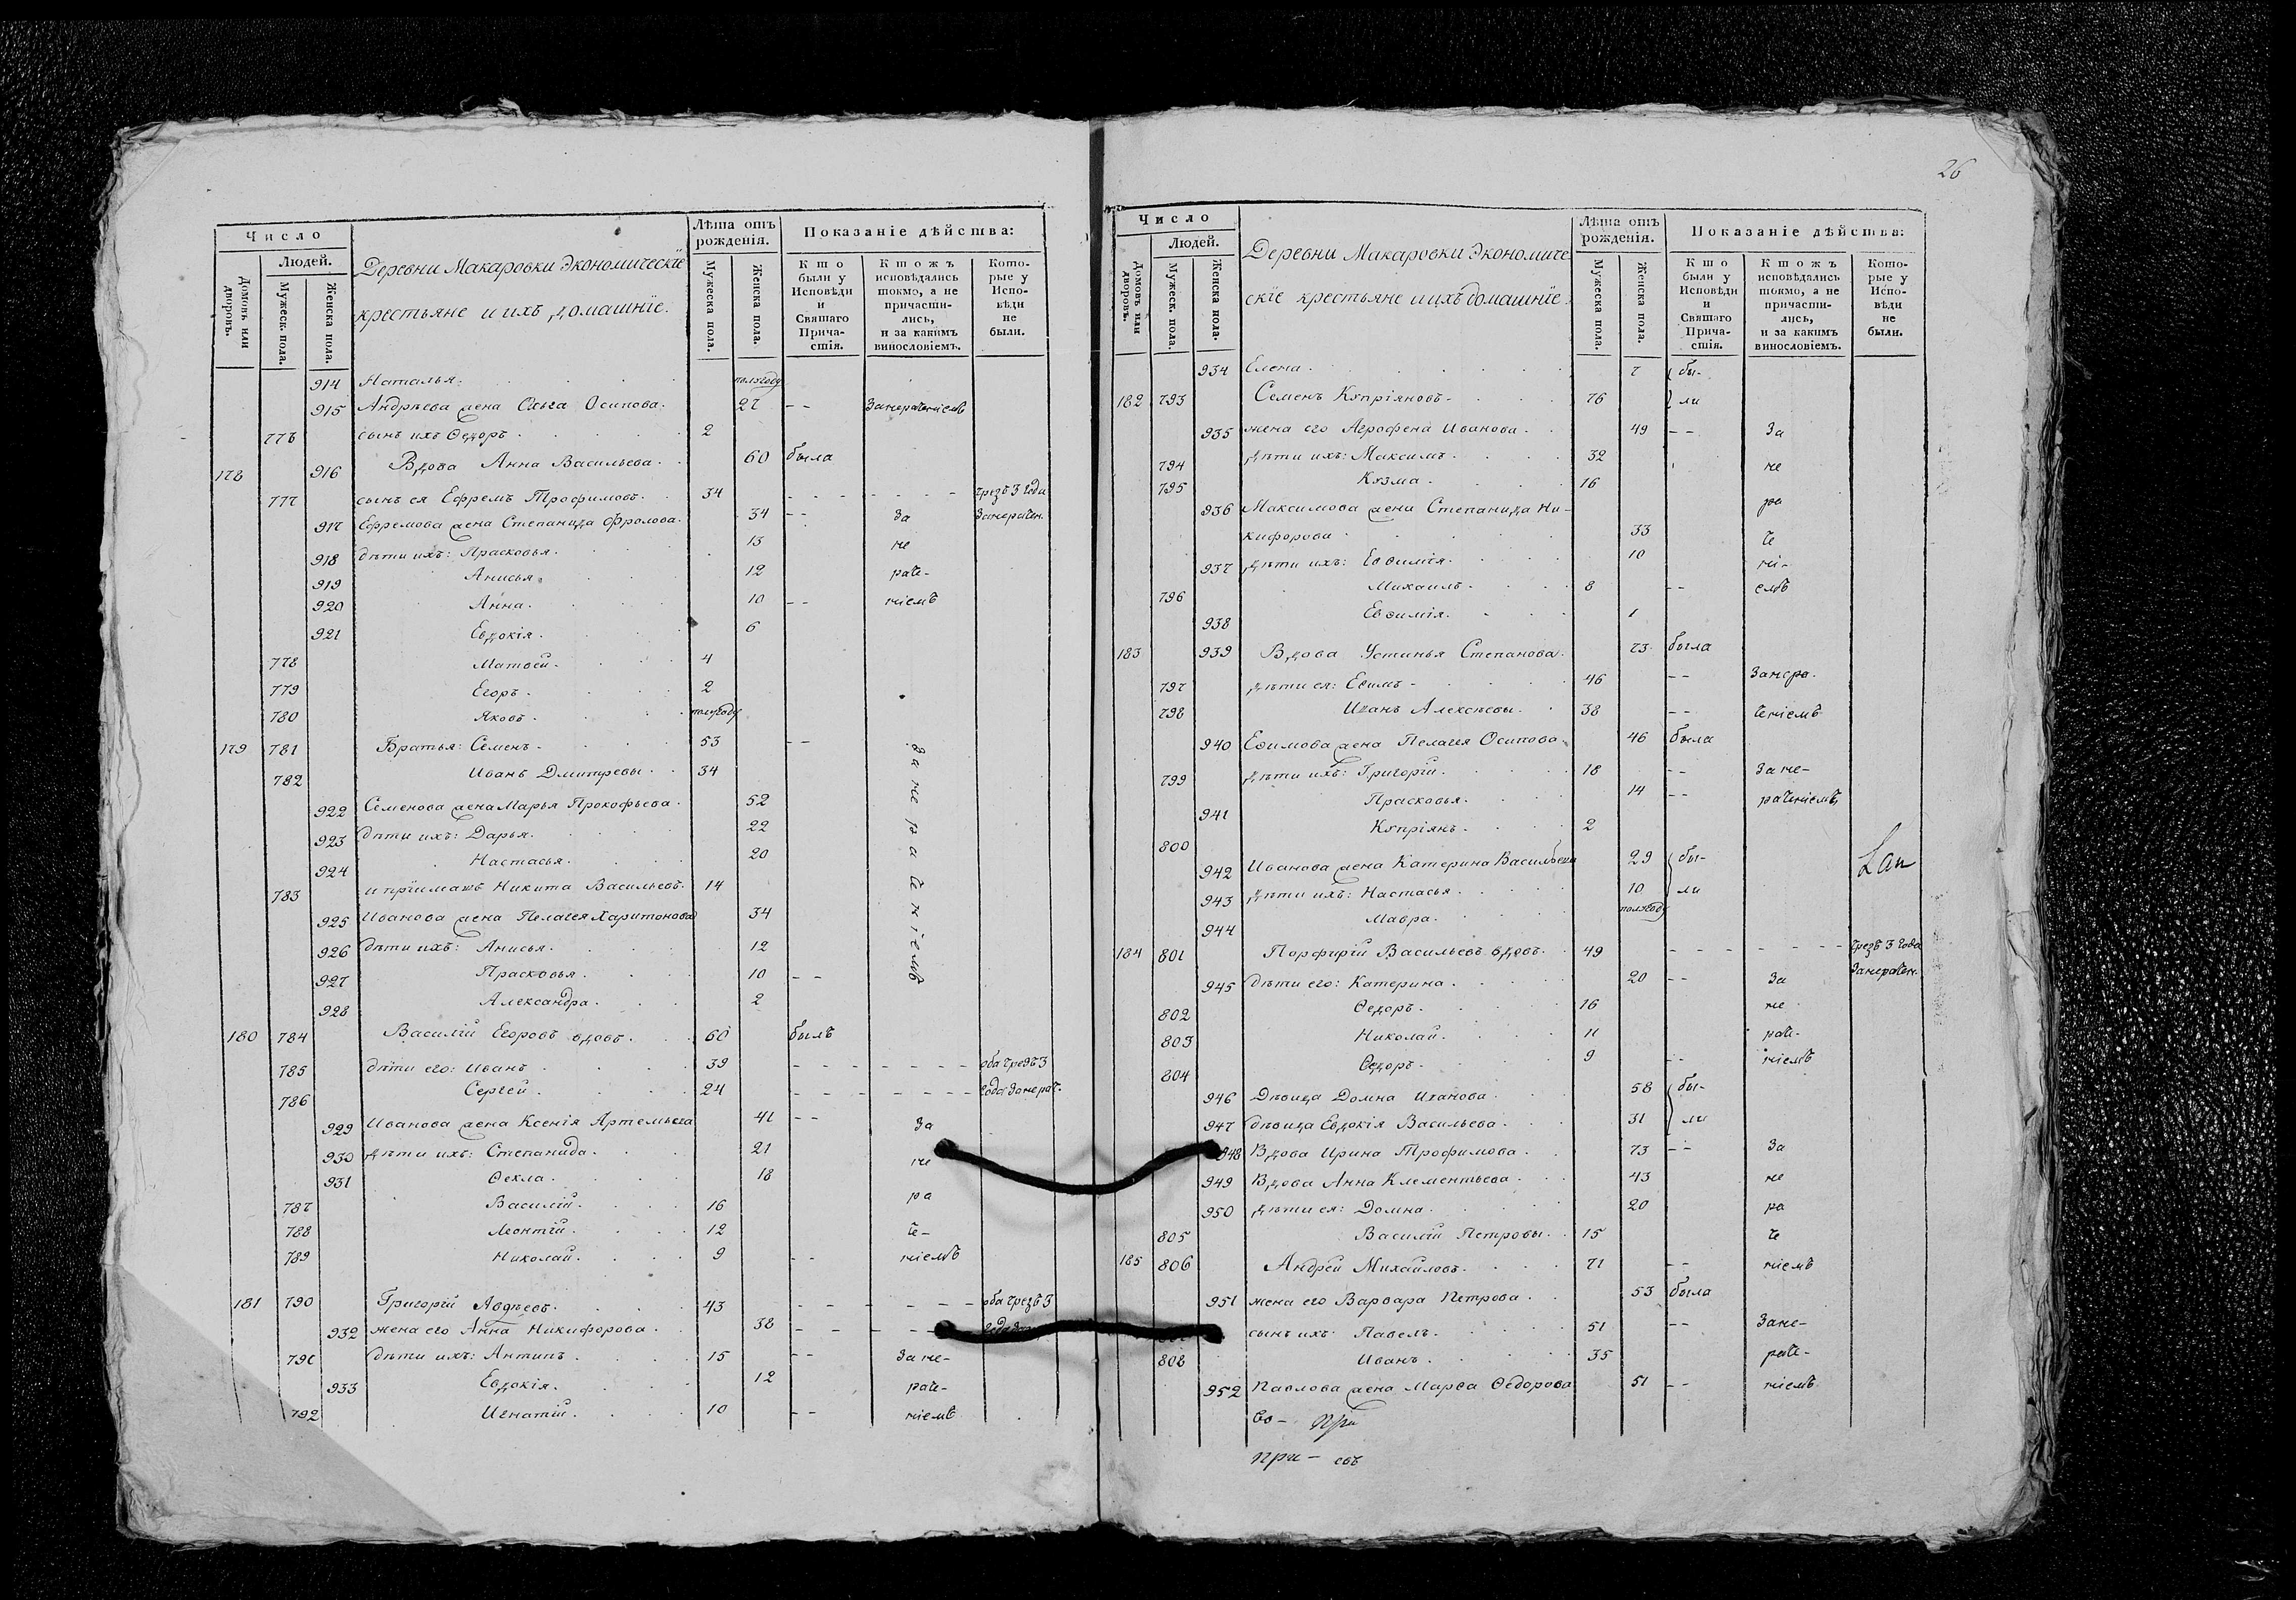 26
Число
Людей.
Домовъ или дворовъ.
Мужеск. пола.
Женска пола.
Деревни Макаровки Экономическіе
крестьяне и ихъ домашніе.
Лѣта отъ рожденія.
Мужеска пола.
Женска пола.
Показаніе дѣйства:
Кто были у Исповѣди и Святаго Причастія.
Ктожъ исповѣдались токмо, а не причастились, и за какимъ винословіемъ.
Которые у Исповѣди не были.
914 Наталья. полугоду
915 Андрѣева жена Ольга Осипова. 27 -- Занераченіемъ
776 сынъ ихъ Ѳедоръ. 2
178 916 Вдова Анна Васильева. 60 была
777 сынъ ея Ефремъ Трофимовъ. 34 - - - - - - - чрезъ 3 года
917 Ефремова жена Степанида Фролова. 34 -- За Занерачен.
918 дѣти ихъ: Прасковья. 13 не
919 Анисья. 12 раче-
920 Анна. 10 -- ніемъ
921 Евдокія. 6
778 Матвей. 4
779 Егоръ. 2
780 Яковъ. полугоду
179 781 Братья: Семенъ. 53 -- За не ра че ніемъ
782 Иванъ Дмитревы. 34
922 Семенова жена Марья Прокофьева. 52
923 дѣти ихъ: Дарья. 22
924 Настасья. 20
783 и пріимакъ Никита Васильевъ. 14
925 Иванова жена Пелагея Харитонова 34
926 дѣти ихъ: Анисья. 12
927 Прасковья. 10 --
928 Александра. 2
180 784 Василій Егоровъ вдовъ. 60 былъ
785 дѣти его: Иванъ. 39 - - - - - - - оба чрезъ 3
786 Сергей. 24 - - - - - - - года занерач.
929 Иванова жена Ксенія Артемьева 41 -- За
930 дѣти ихъ: Степанида. 21 не
931 Ѳекла. 18
787 Василій. 16 ра
788 Леонтій. 12 че-
789 Николай. 9 -- ніемъ
181 790 Григорій Авдѣевъ. 43 - - - - - - - оба чрезъ 3
932 жена его Анна Никифорова. 38 - - - - -
791 дѣти ихъ: Антипъ. 15 -- За не-
933 Евдокія. 12 раче-
792 Игнатій. 10 -- ніемъ
Число
Людей.
Домовъ или дворовъ.
Мужеск. пола.
Женска пола.
Деревни Макаровки Экономиче
скіе крестьяне и ихъ домашніе.
Лѣта отъ рожденія.
Мужеска пола.
Женска пола.
Показаніе дѣйства:
Кто были у Исповѣди и Святаго Причастія.
Ктожъ исповѣдались токмо, а не причастились, и за какимъ винословіемъ.
Которые у Исповѣди не были.
934 Елена. 7 бы-
182 793 Семенъ Купріяновъ. 76 ли
935 жена его Агрофена Иванова. 49 -- За
794 дѣти ихъ: Максимъ. 32 не
795 Кузма. 16
936 Максимова жена Степанида Ни- ра
кифорова. 33 че
937 дѣти ихъ: Евѳимія. 10 ні-
796 Михаилъ. 8 -- емъ
938 Евѳимія. 1
183 939 Вдова Устинья Степанова. 73 была
797 дѣти ея: Еѳимъ. 46 -- Занера-
798 Иванъ Алексѣевы. 38 -- ченіемъ
940 Еѳимова жена Пелагея Осипова. 46 была
799 дѣти ихъ: Григорій. 18 -- За не-
941 Прасковья. 14 -- раченіемъ
800 Купріянъ. 2
942 Иванова жена Катерина Васильева 29 бы-
943 дѣти ихъ: Настасья. 10 ли
944 Мавра. полугоду
184 801 Порфирій Васильевъ вдовъ. 49 - - - - - - - чрезъ 3 года
945 дѣти его: Катерина. 20 -- За Занерачен.
802 Ѳедоръ. 16 не
803 Николай. 11 раче-
804 Ѳедоръ. 9 -- ніемъ
946 Дѣвица Домна Иванова. 58 бы-
947 дѣвица Евдокія Васильева. 31 ли
948 Вдова Ирина Трофимова. 73 -- За
949 Вдова Анна Клементьева. 43 не
950 дѣти ея: Домна. 20 ра
805 Василій Петровы. 15 че
185 806 Андрей Михайловъ. 71 -- ніемъ
951 жена его Варвара Петрова. 53 была
сынъ ихъ: Павелъ. 51 -- Зане-
808 Иванъ. 35 раче-
952 Павлова жена Марѳа Ѳедорова 51 -- ніемъ
во- при
при- въ